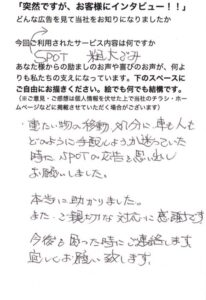 「突然ですが、お客様にインタビュー！！」
どんな広告を見て当社をお知りになりましたか
今回ご利用されたサービス内容は何ですか
SPOT 粗大ごみ
あなた様からの励ましのお声や喜びのお声が、何よ
りも私たちの支えになっています。下のスペースに
ご自由にお書きください。絵でも何でも結構です。
(※ご意見・ご感想は個人情報を伏せた上で当社のチラシ・ホー
ムページなどに掲載させていただく場合がございます)
・重たい物の移動、処分に車も人も
どのように手配しようか迷っていた
時にSPOTの広告を思い出し
お願いしました。
本当に助かりました。
また、ご親切な対応に感謝です
今後も困った時にご連絡します
宜しくお願い致します。